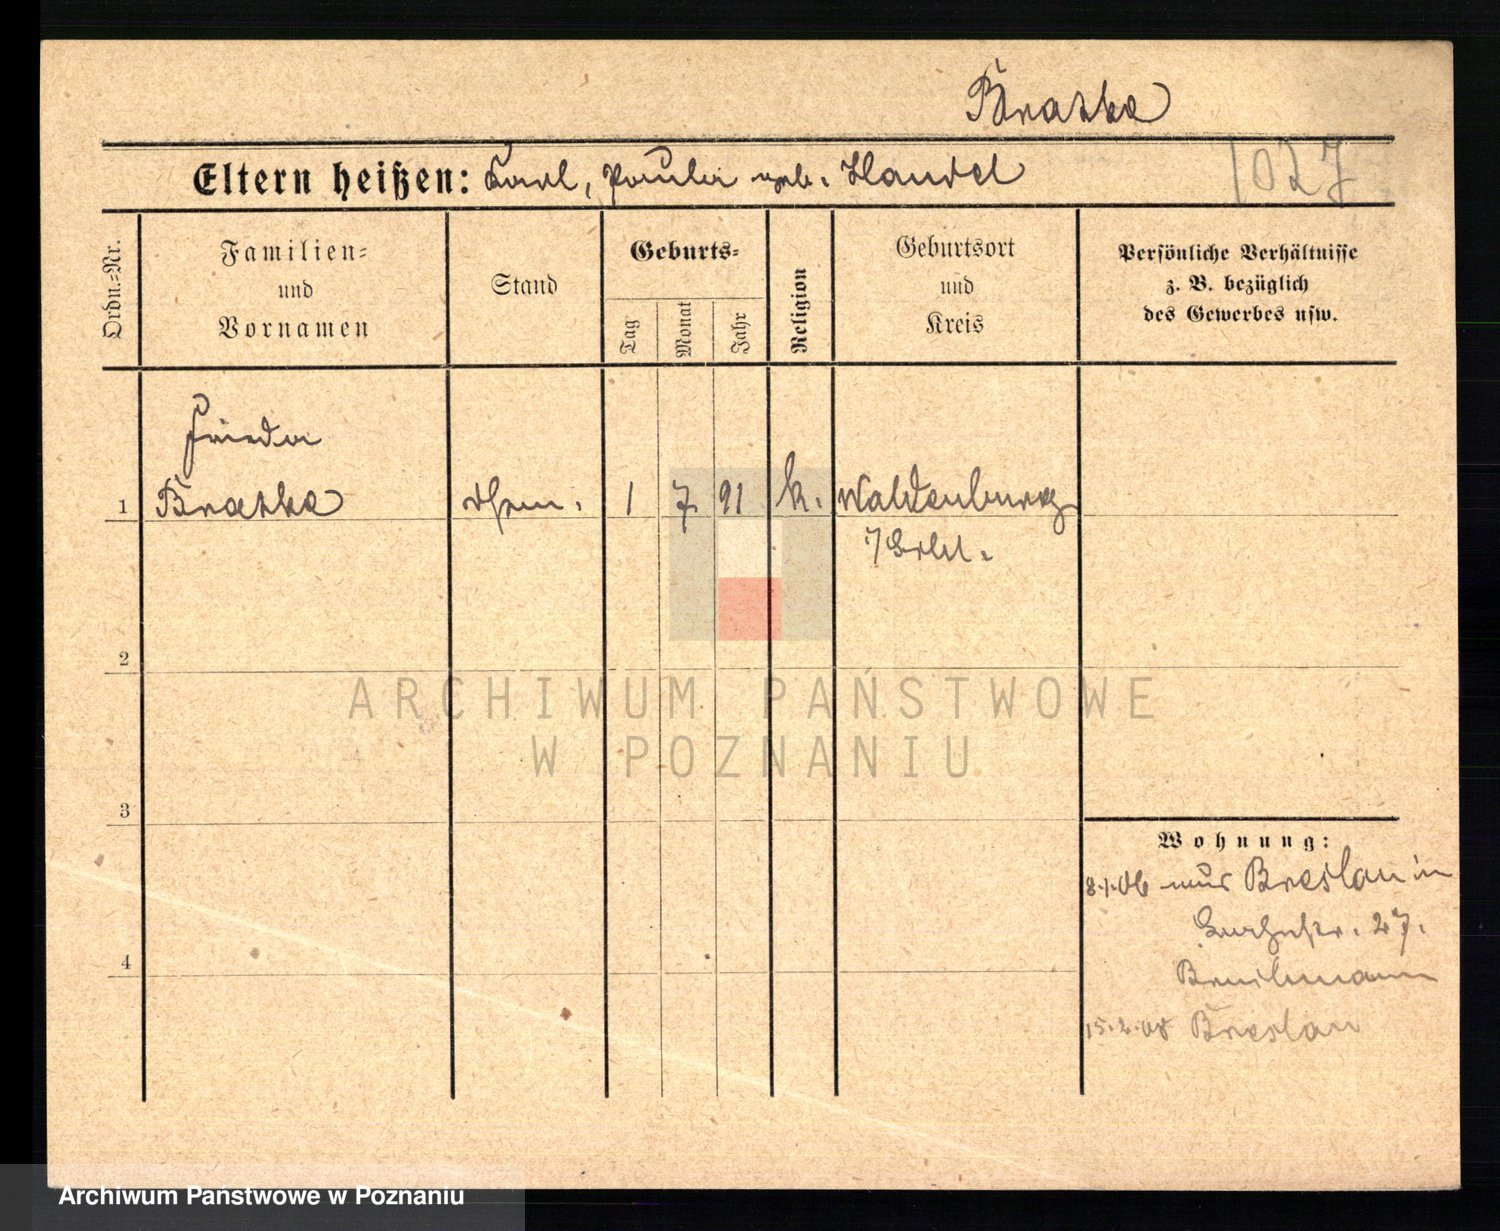 Bratke
Eltern heißen: Karl, Paula geb. Handel
1027
Ordn.-Nr.
Familien-
und
Vornamen
Stand
Geburts-
Tag
Monat
Jahr
Religion
Geburtsort
und
Kreis
Persönliche Verhältnisse
z. B. bezüglich
des Gewerbes usw.
Frieda
1 Bratke 1 7. 91 k. Waldenburg
i/Schl.
2
3
4
Wohnung:
8.1.06 aus Breslau in
27.
15.2.08 Breslau
ARCHIWUM PAŃSTWOWE
W POZNANIU
Archiwum Państwowe w Poznaniu